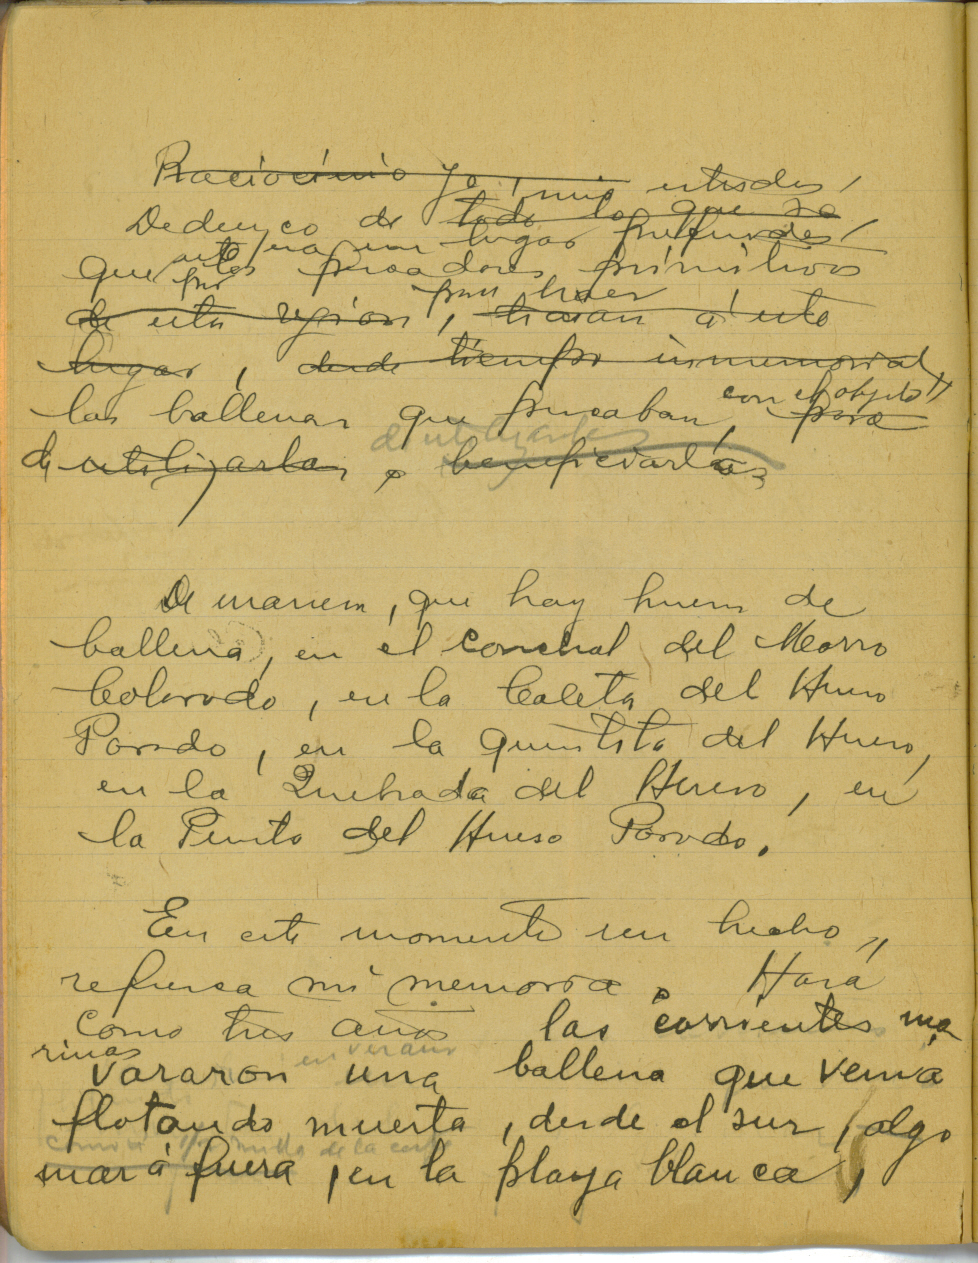 Raciocinio Yo, mis
Deduzco de todo lo que se
era un lugar
que los pescadores primitivos
por para
de esta región, traían á esto
lugar, desde tiempo inmemorial,
con el objeto
las ballenas que pescaban, para
de utilizarlas
de utilizarlas o beneficiarlas
De manera, que hay hueso de
ballena, en el conchal del Morro
Colorado, en la Caleta del Hueso
Parado, en la del Hueso,
en la Quebrada del Hueso, en
la Punta del Hueso Parado.
En este momento un hecho,
refuersa mi memoria. Hará
como tres años las corrientes ma
rinas en verano
vararon una ballena que venia
flotando muerta, desde el sur, algo
como milla de la costa
mar á fuera, en la playa blanca,